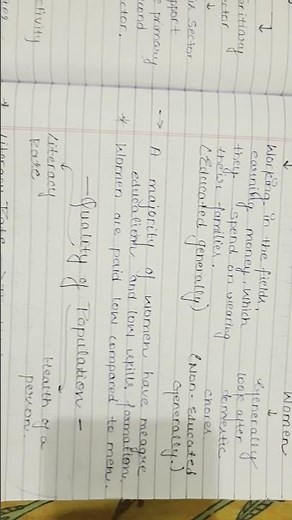 sector
primary
ctor.
ctivity
Women
Working in the fields,
earning money, which
they spend on wearing
their families.
(Educated generally)
(Generally
look after
domestic
chores
(Non-educated
generally.)
→ A majority of women have meagre
education and low skill formation.
Women are paid low compared to men.
— Quality of Population —
Literacy
Rate
Health of a
person.